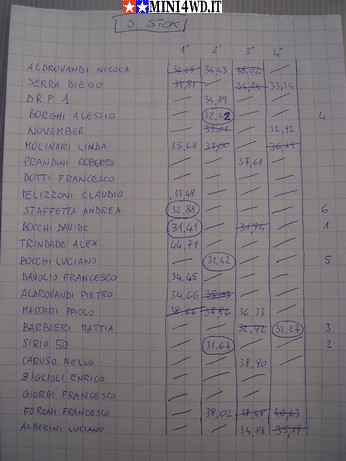 MINI4WD.IT
S. STOK
1° 2° 3° 4°
ALDROVANDI NICOLA 34,43 38,02
SERRA DIEGO 33,81 34,84 33,34
D.R.F. 1 34,89
BORGHI ALESSIO 4
NOVEMBER 32,92
MOLINARI LINDA 35,68 37,00
PRANDINI ROBERTO 37,68
DOTTI FRANCESCO
PELIZZONI CLAUDIO 33,48
STAFFETTA ANDREA 32,88 6
BOCCHI DAVIDE 31,41 31,94 1
TRINDADE ALEX 44,71
BOCCHI LUCIANO 32,42 5
DAVOLIO FRANCESCO 34,45
ALDROVANDI PIETRO 34,66
MASSARI PAOLO 36,33
BARBIERI MATTIA 32,92 32,27 3
SIRIO 50 31,67 2
CARUSO NELLO 38,90
ZIGLIOLI ENRICO
GIORGI FRANCESCO
FORONI FRANCESCO 38,02 40,63
ALBERINI LUCIANO 34,88